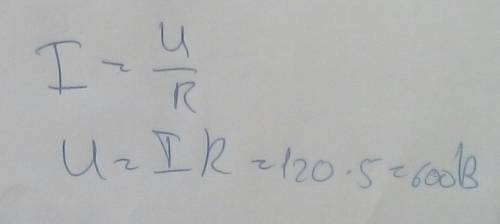 I = U/R
U = IR = 120 · 5 = 600 В